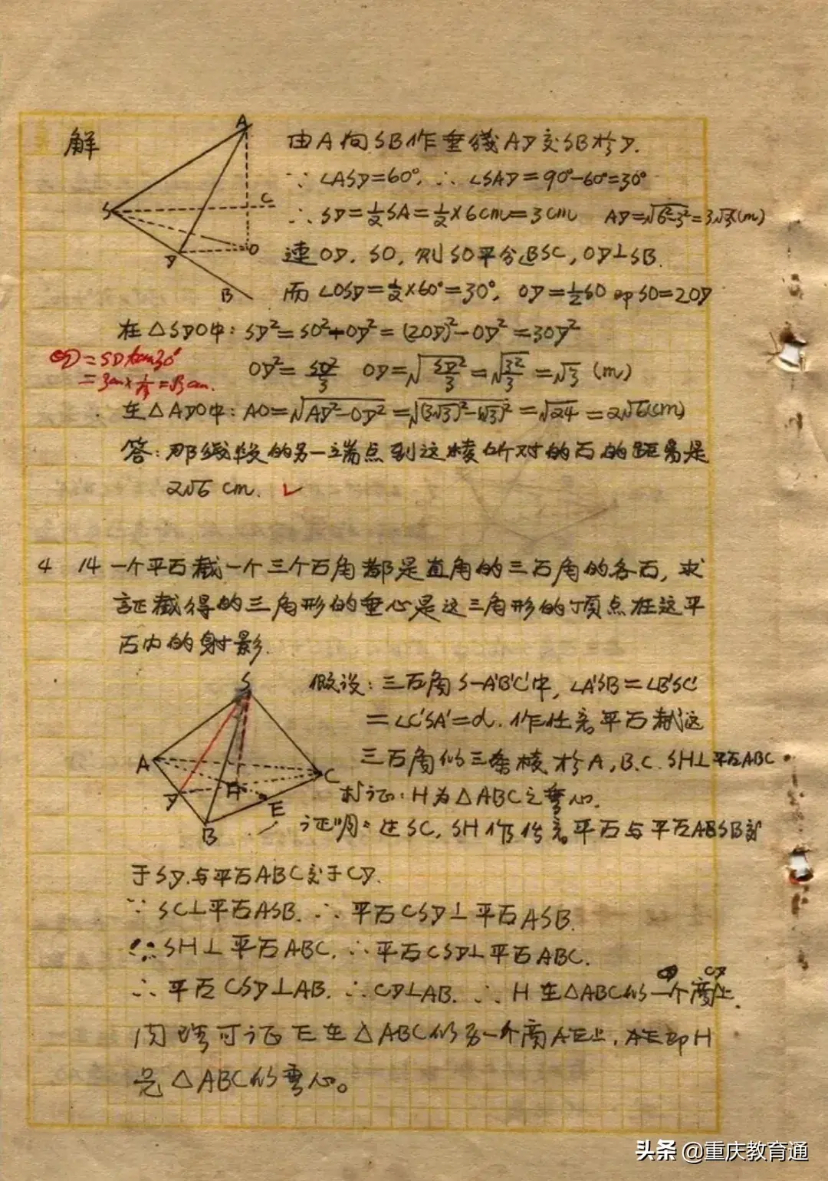 解
A
S
C
D
O
B
由A向SB作垂线AD交SB于D.
∵ ∠ASD=60°, ∴ ∠SAD=90°-60°=30°
∴ SD=½SA=½×6cm=3cm AD=√6²-3²=3√3(cm)
连OD, SO, 则SO平分∠BSC, OD⊥SB.
而∠OSD=½×60°=30°, OD=½SO 即SO=2OD
在△SDO中: SD²=SO²+OD²=(2OD)²-OD²=3OD²
OD=SDtan30°
=3cm×1/√3=√3cm.
OD²=SD²/3 OD=√SD²/3=√3²/3=√3 (cm)
在△ADO中: AO=√AD²-OD²=√(3√3)²-(√3)²=√24=2√6(cm)
答: 那线段的另一端点到这棱所对的面的距离是
2√6 cm. ✓
4 14 一个平面截一个三个面角都是直角的三面角的各面, 求
证截得的三角形的垂心是这三角形的顶点在这平
面内的射影.
S
A
C
D
H
E
B
假设: 三面角S-A'B'C'中, ∠A'SB'=∠B'SC'
=∠C'SA'=d. 作任意平面截这
三面角的三条棱于A, B, C. SH⊥平面ABC.
求证: H为△ABC之垂心.
证明: 过SC, SH作任意平面与平面ASB交
于SD, 与平面ABC交于CD.
∵ SC⊥平面ASB. ∴ 平面CSD⊥平面ASB.
∵ SH⊥平面ABC. ∴ 平面CSD⊥平面ABC.
∴ 平面CSD⊥AB. ∴ CD⊥AB. ∴ H在△ABC的一个高CD上.
同理可证E在△ABC的另一个高AE上, 即H
是△ABC的垂心。
头条 @重庆教育通